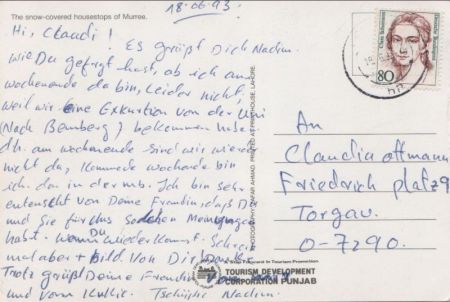 The snow-covered housestops of Murree.
18.06.93
Hi, Claudi!
ES grüßt Dich Nadim.
wie Du gefragt hast, ob ich am
wochenende da bin, Leider nicht,
weil wir eine Exkurtion von der Uni
(Nach Bemberg) bekommen haben
dh. am wochenende sind wir
nicht da, Kommede wocharde bin
ich da in der
Ich bin sehr
enteuscht von Deine Freundin daß Du
und Sie für uns solchen Meinungen
habt. wann Du wieder kommst. Schreib
mal aber + Bild von Dir. Danke
Trotz grüßt Deine Freundin
und vom
Tschüße Nadim.
PHOTOGRAPHY: ZAFAR AHMAD, PRINTED AT:
HOUSE, LAHORE
A Step Forward in Tourism Promotion
TOURISM DEVELOPMENT
CORPORATION PUNJAB
Clara Schumann
Deutsche Bundespost
80
An
Claudia offmann
Friedrich platz 9
Torgau.
O-7290.